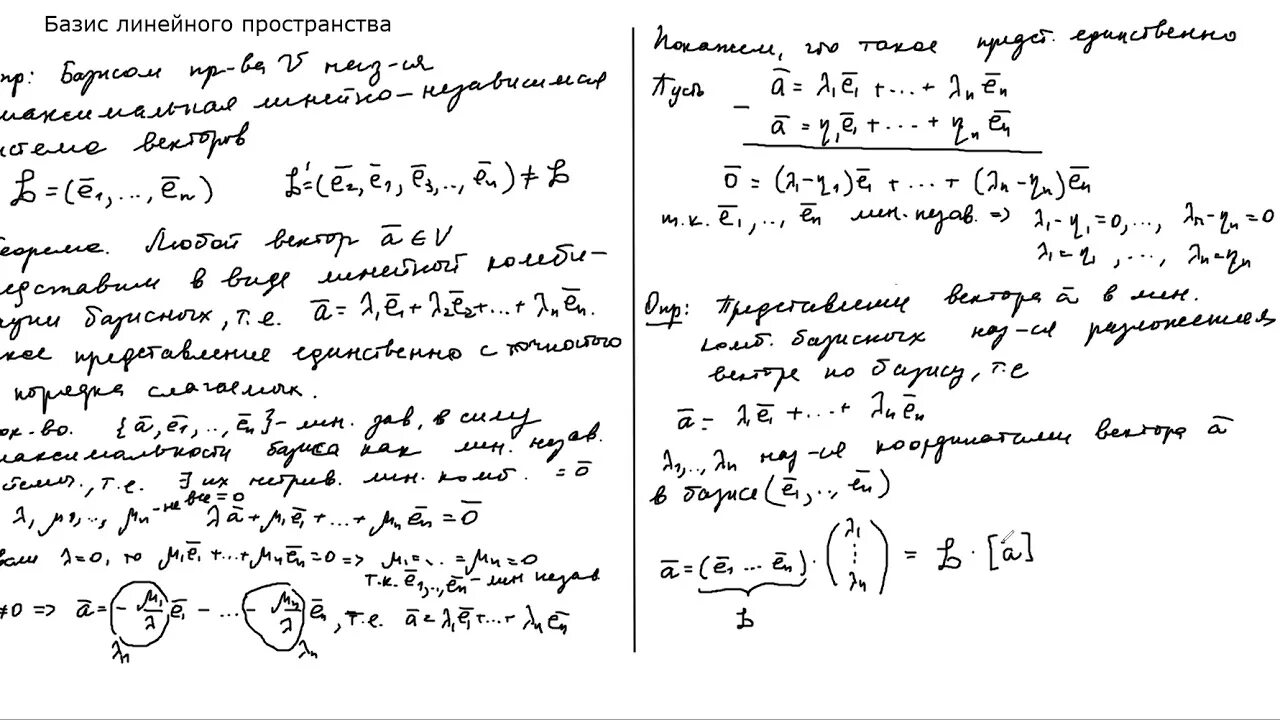 Базис линейного пространства
пр: Базисом пр-ва V наз-ся
максимальная линейно-независимая
истема векторов
𝓛 = (e̅₁, ..., e̅ₙ)   𝓛' = (e̅₂, e̅₁, e̅₃, .., e̅ₙ) ≠ 𝓛
Теорема. Любой вектор a̅ ∈ V
редставим в виде линейной комби-
ации базисных, т.е. a̅ = λ₁e̅₁ + λ₂e̅₂ + ... + λₙe̅ₙ.
кое представление единственно с точностью
порядка слагаемых.
ок-во. {a̅, e̅₁, .., e̅ₙ} - лин. зав, в силу
максимальности базиса как лин. незав.
стемы., т.е. ∃ их нетрив. лин. комб. = 0̅
λ, μ₁, .., μₙ - не все = 0   λa̅ + μ₁e̅₁ + ... + μₙe̅ₙ = 0̅
сли λ=0, то μ₁e̅₁ + ... + μₙe̅ₙ = 0 => μ₁ = ... = μₙ = 0
т.к. e̅₁, .., e̅ₙ - лин незав
≠0 => a̅ = - μ₁/λ e̅₁ - ... - μₙ/λ e̅ₙ, т.е. a̅ = λ₁e̅₁ + ... + λₙe̅ₙ
λₙ   λₙ
Покажем, что такое предст. единственно
Пусть a̅ = λ₁e̅₁ + ... + λₙe̅ₙ
− a̅ = η₁e̅₁ + ... + ηₙe̅ₙ
0̅ = (λ₁-η₁)e̅₁ + ... + (λₙ-ηₙ)e̅ₙ
т.к. e̅₁, .., e̅ₙ лин. незав. => λ₁-η₁=0, ..., λₙ-ηₙ=0
λ₁=η₁, ..., λₙ=ηₙ
Опр: Представление вектора a̅ в лин.
комб. базисных наз-ся разложением
вектора по базису, т.е
a̅ = λe̅₁ + ... + λₙe̅ₙ
λ₁, .., λₙ наз-ся координатами вектора a̅
в базисе (e̅₁, .., e̅ₙ)
a̅ = (e̅₁ ... e̅ₙ) · (λ₁ ⋮ λₙ) = 𝓛 · [a̅]
𝓛